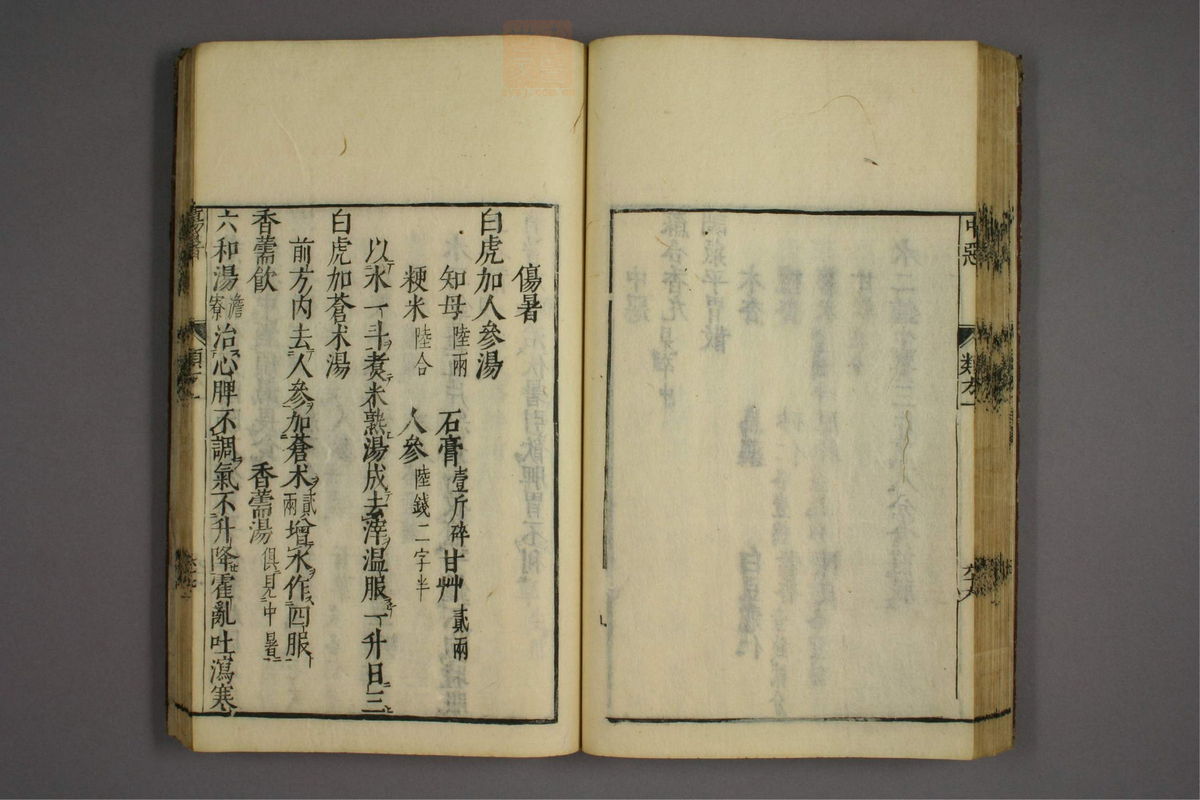 中惡
類方
六十六
傷暑
白虎加人參湯
知母陸兩 石膏壹斤碎 甘艸貳兩
粳米陸合 人參陸錢二字半
以水一斗煮米熟湯成去滓温服一升日三
白虎加蒼朮湯
前方内去人參加蒼朮貳兩增水作四服
香薷飲 香薷湯俱見中暑
六和湯澹寮治心脾不調氣不升降霍亂吐瀉寒
傷暑
類方